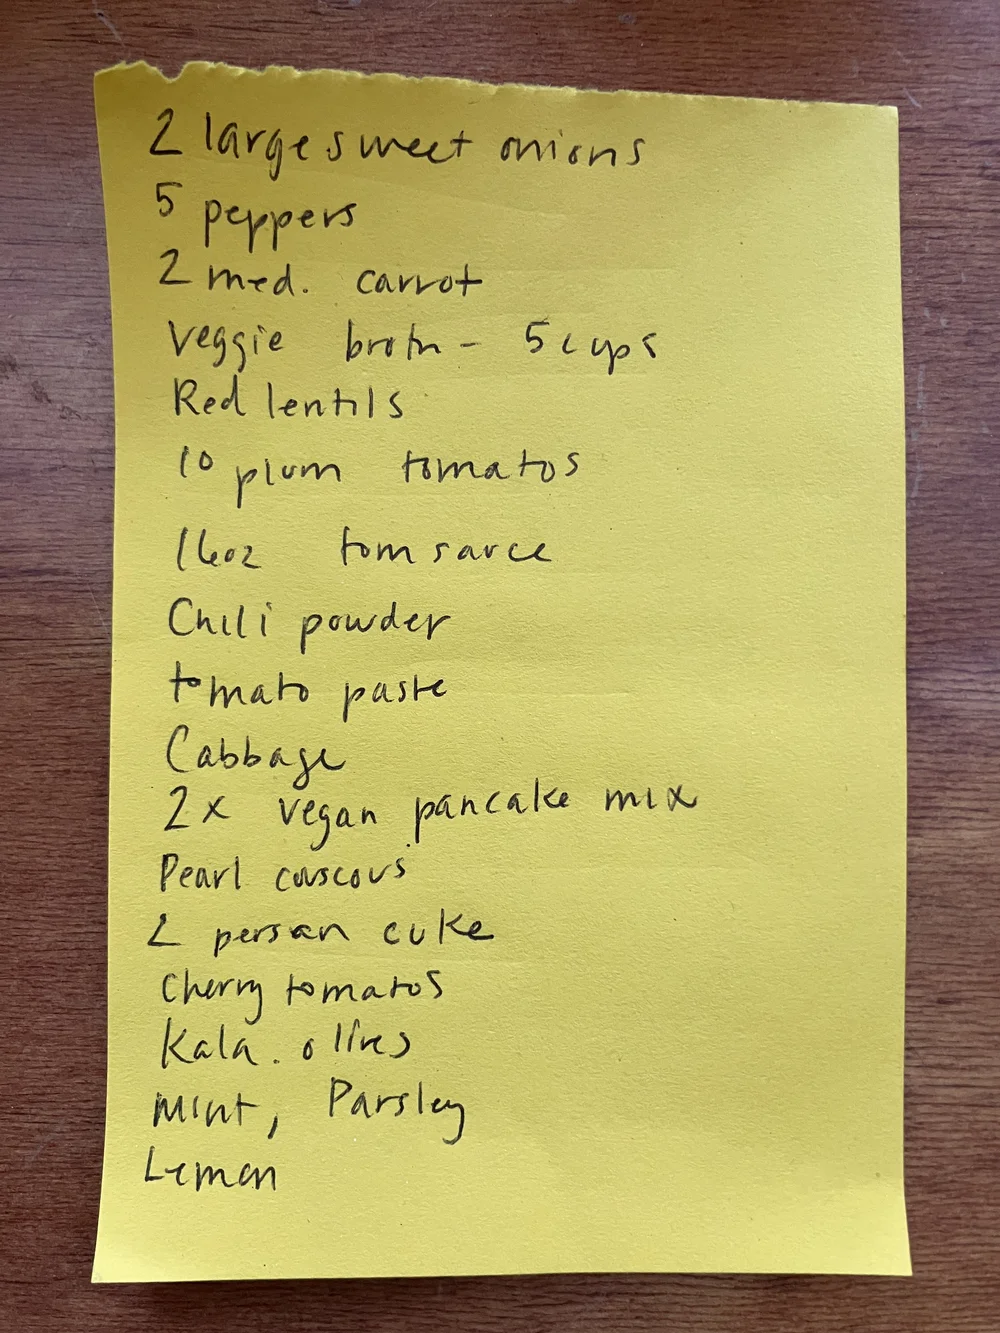 2 large sweet onions
5 peppers
2 med. carrot
Veggie broth - 5 cups
Red lentils
10 plum tomatos
16oz tom sauce
Chili powder
tomato paste
Cabbage
2x vegan pancake mix
Pearl couscous
2 persian cuke
Cherry tomatos
Kala. olives
Mint, Parsley
Lemon